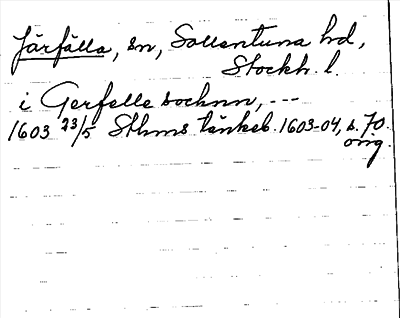 Järfälla, sn, Sollentuna hd,
Stockh. l.
i Gerfelle sochnn, ---
1603 23/5 Sthms tänkeb. 1603-04, s. 70.
orig.